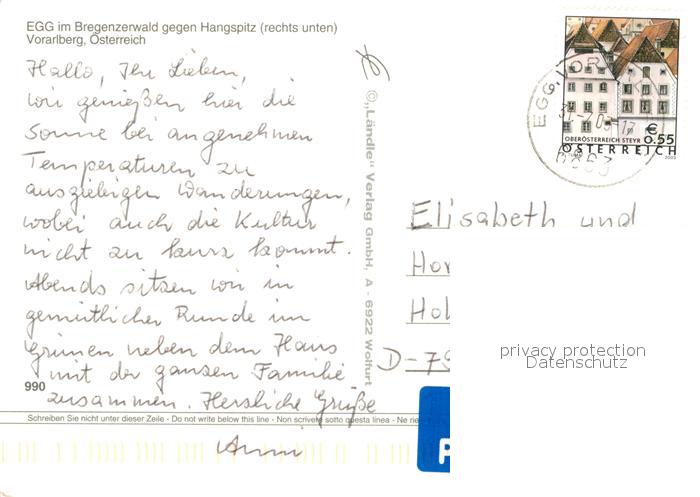 EGG im Bregenzerwald gegen Hangspitz (rechts unten)
Vorarlberg, Österreich
Hallo, Ihr Lieben,
wir genießen hier die
Sonne bei angenehmen
Temperaturen zu
ausgiebigen Wanderungen,
wobei auch die Kultur
nicht zu kurz kommt.
Abends sitzen wir in
gemütlicher Runde im
Grünen neben dem Haus
mit der ganzen Familie
zusammen. Herzliche Grüße
990
Schreiben Sie nicht unter dieser Zeile - Do not write below this line - Non scrivete sotto questa linea - Ne
© „Ländle" Verlag GmbH, A - 6922 Wolfurt
€ 0.55
OBERÖSTERREICH STEYR
ÖSTERREICH
2003
EGG, VOR
6863
Elisabeth und
Ho
Hol
D-79
P
privacy protection
Datenschutz